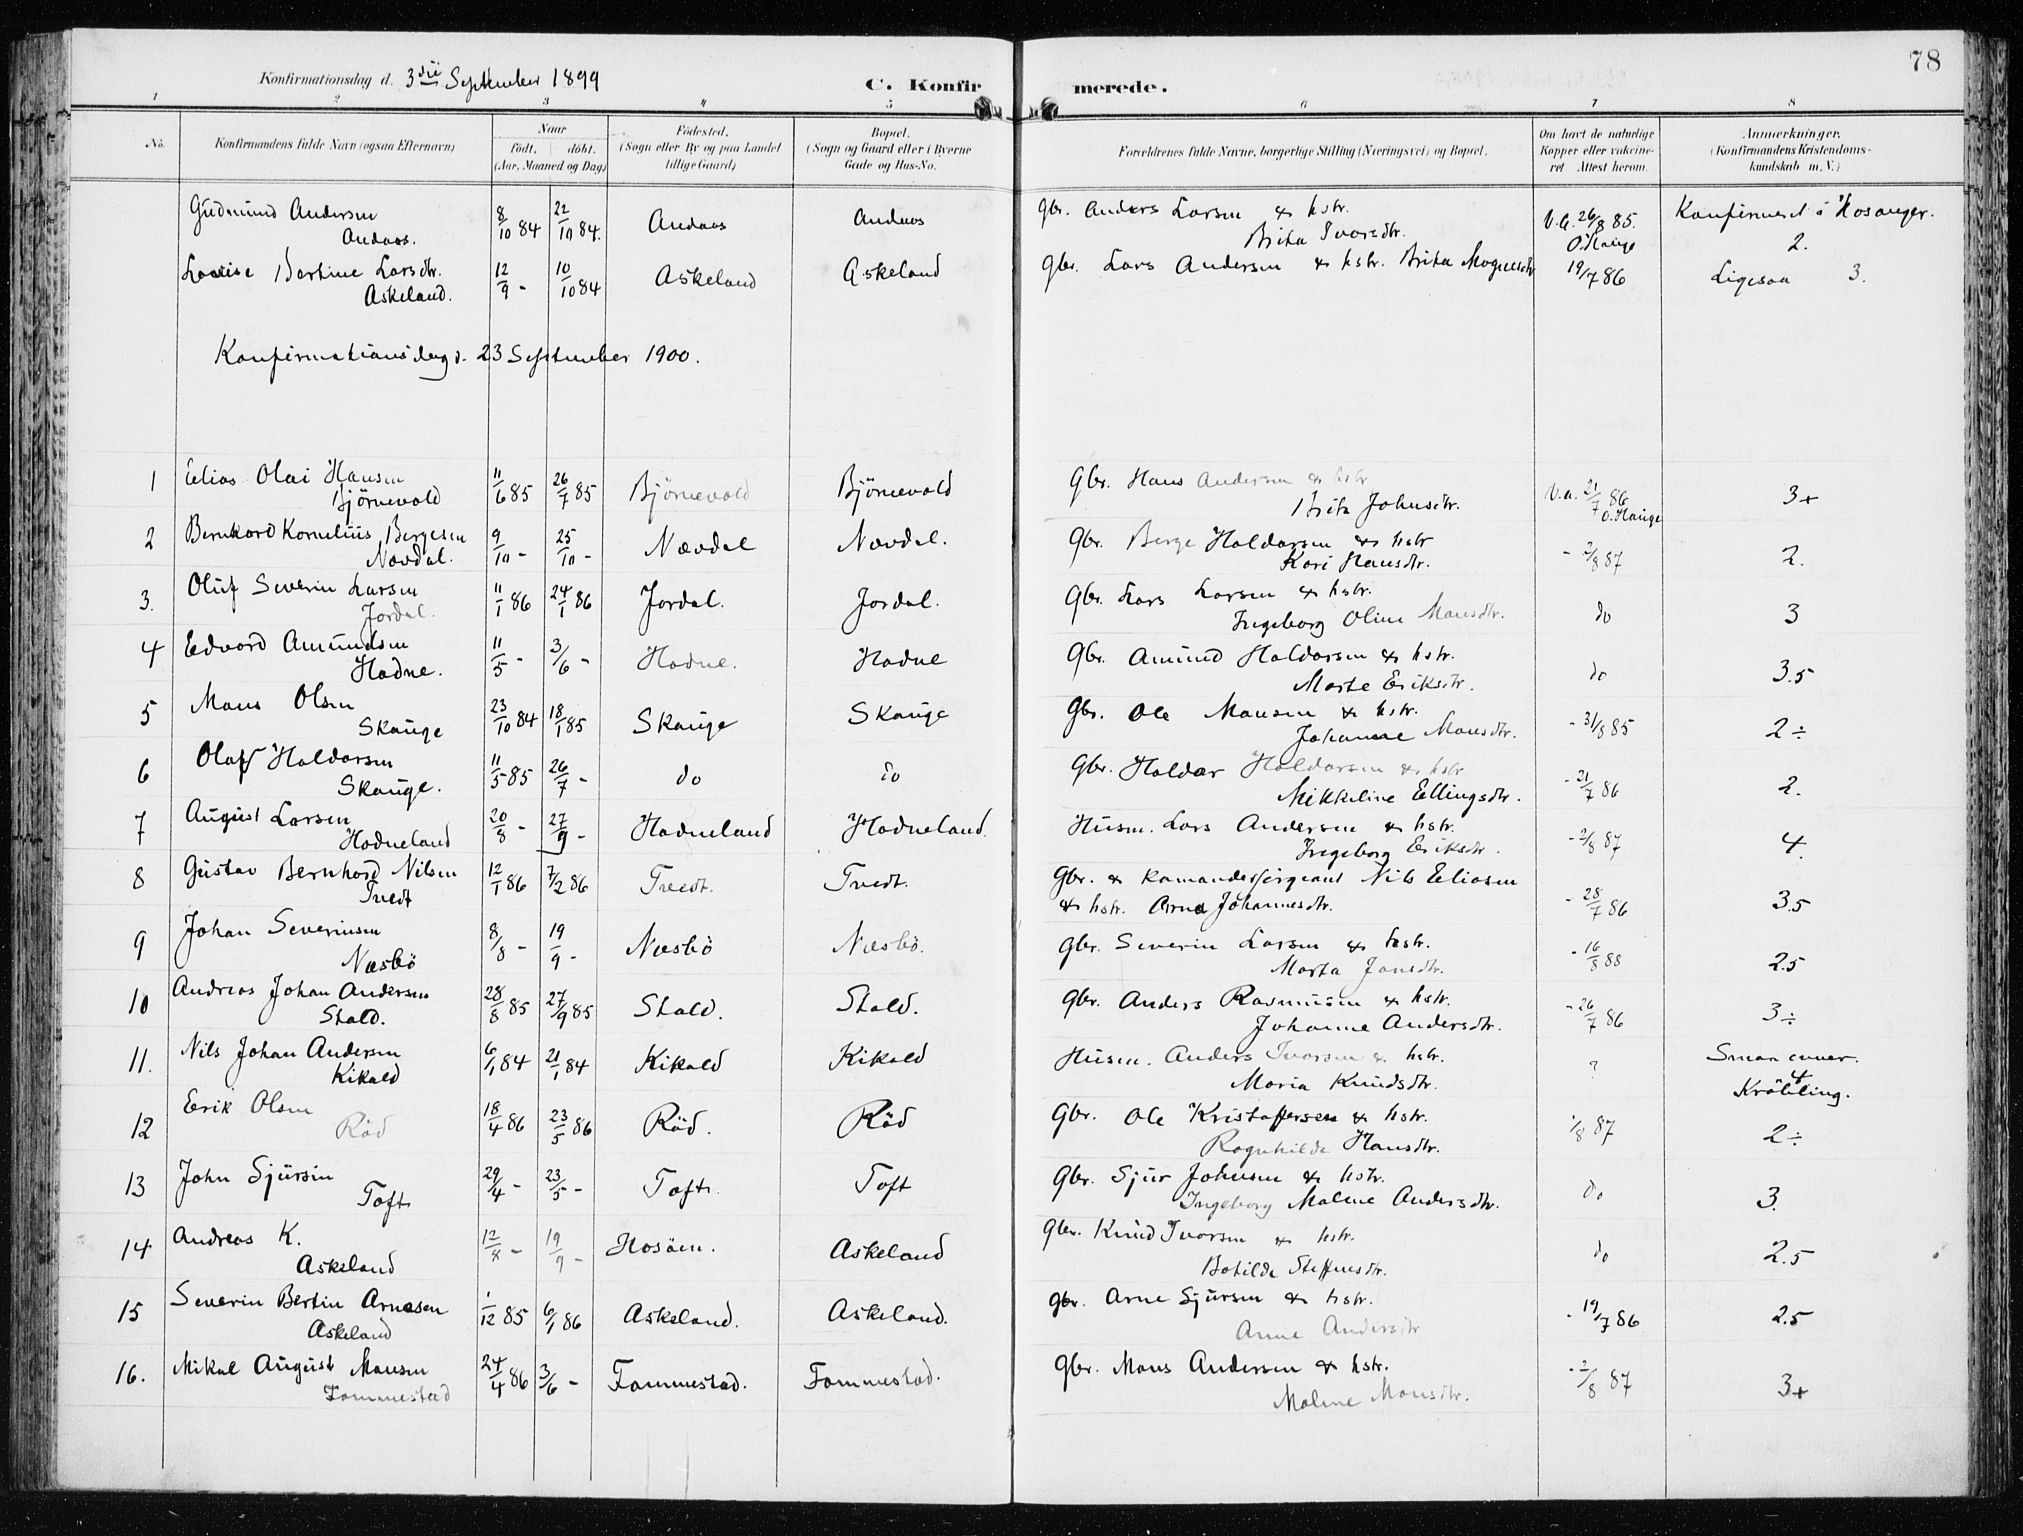 78
Konfirmationsdag d. 3die September 1899
C. Konfirmerede.
1 2 3 4 5 6 7 8
No. Konfirmandens fulde Navn (ogsaa Efternavn) Naar født. døbt. (Aar, Maaned og Dag) Fødested. (Sogn eller By og paa Landet tillige Gaard) Bopæl. (Sogn og Gaard eller i Byerne Gade og Hus-No. Forældrenes fulde Navne, borgerlige Stilling (Næringsvei) og Bopæl. Om havt de naturlige Kopper eller vaccineret Attest herom. Anmærkninger. (Konfirmandens Kristendomskundskab m. V.)
Gudmund Andersen Andaas. 8/10 84 22/10 84. Andaas Andaas Gbr. Anders Larsen & hstr. Brita Ivarsdtr. V.A. 26/8 85. O. Hauge Konfirmeret i Hosanger. 2.
Lovise Bertine Larsdtr. Askeland. 12/9 - 10/10 84 Askeland Askeland Gbr. Lars Andersen & hstr. Brita Mognesdtr 19/7 86 Ligesaa 3.
Konfirmationsdag d. 23 September 1900.
1 Elias Olai Hansen Björnevold 11/6 85 26/7 85 Björnevold Björnevold Gbr. Hans Andersen & hstr. Brita Johnsdtr. V.a. 21/7 86 O. Hauge 3+
2 Bernhard Kornelius Bergesen Navdal. 9/10 - 25/10 - Nævdal Nævdal. Gbr. Berge Haldorsen & hstr Kari Hansdtr. - 2/8 87 2.
3. Oluf Severin Larsen Jordal. 11/1 86 24/1 86 Jordal. Jordal. Gbr. Lars Larsen & hstr. Ingeborg Oline Mansdtr. do 3
4 Edvard Amundsen Hodne. 11/5 - 3/6 - Hodne. Hodne Gbr. Amund Haldorsen & hstr. Marte Eriksdtr. do 3.5
5 Mons Olsen Skauge 23/10 84 18/1 85 Skauge Skauge Gbr. Ole Monsen & hstr. Johanne Monsdtr. - 31/8 85 2÷
6 Olaf Haldorsen Skauge. 11/5 85 26/7 - do do Gbr. Haldor Haldorsen & hstr Mikkeline Ellingsdtr. - 21/7 86 2.
7 August Larsen Hodneland 20/8 - 27/9 - Hodneland Hodneland. Husm. Lars Andersen & hstr. Ingeborg Eriksdtr. - 2/8 87 4.
8 Gustav Bernhard Nilsen Tvedt 12/1 86 7/2 86 Tvedt. Tvedt. Gbr. & Komandersergeant Nils Eliasen & hstr. Anna Johannesdtr. - 28/7 86 3.5
9 Johan Severinsen Næsbö 8/8 - 19/9 - Næsbö Næsbö. Gbr. Severin Larsen & hstr. Marta Jonsdtr. - 16/8 88 2.5
10 Andreas Johan Andersen Skald. 28/8 85 27/9 85 Skald. Skald. Gbr. Anders Rasmusen & hstr. Johanne Andersdtr. - 26/7 86 3÷
11. Nils Johan Andersen Kikald 6/1 84 21/1 84 Kikald Kikald Husm. Anders Ivarsen & hstr. Maria Knudsdtr. ? Smaa evner. 4 Kröbling.
12 Erik Olsen Röd 18/4 86 23/5 86 Röd. Röd Gbr. Ole Kristoffersen & hstr. Ragnhilda Hansdtr. 1/8 87 2÷
13 John Sjursen Toft 29/4 - 23/5 - Toft. Toft Gbr. Sjur Johnsen & hstr. Ingeborg Malene Andersdtr. do 3.
14 Andreas K. Askeland 12/8 - 19/9 - Hosöen. Askeland Gbr. Knud Ivarsen & hstr. Botilda Steffensdtr. do 2.5
15 Severin Bertin Arnesen Askeland 1/12 85 6/1 86 Askeland. Askeland. Gbr. Arne Sjursen & hstr. Anne Andersdtr - 19/7 86 2.5
16. Mikal August Monsen Fammestad 24/4 86 3/6 - Fammestad. Fammestad. Gbr. Mons Andersen & hstr. Malene Monsdtr. - 2/8 87 3+